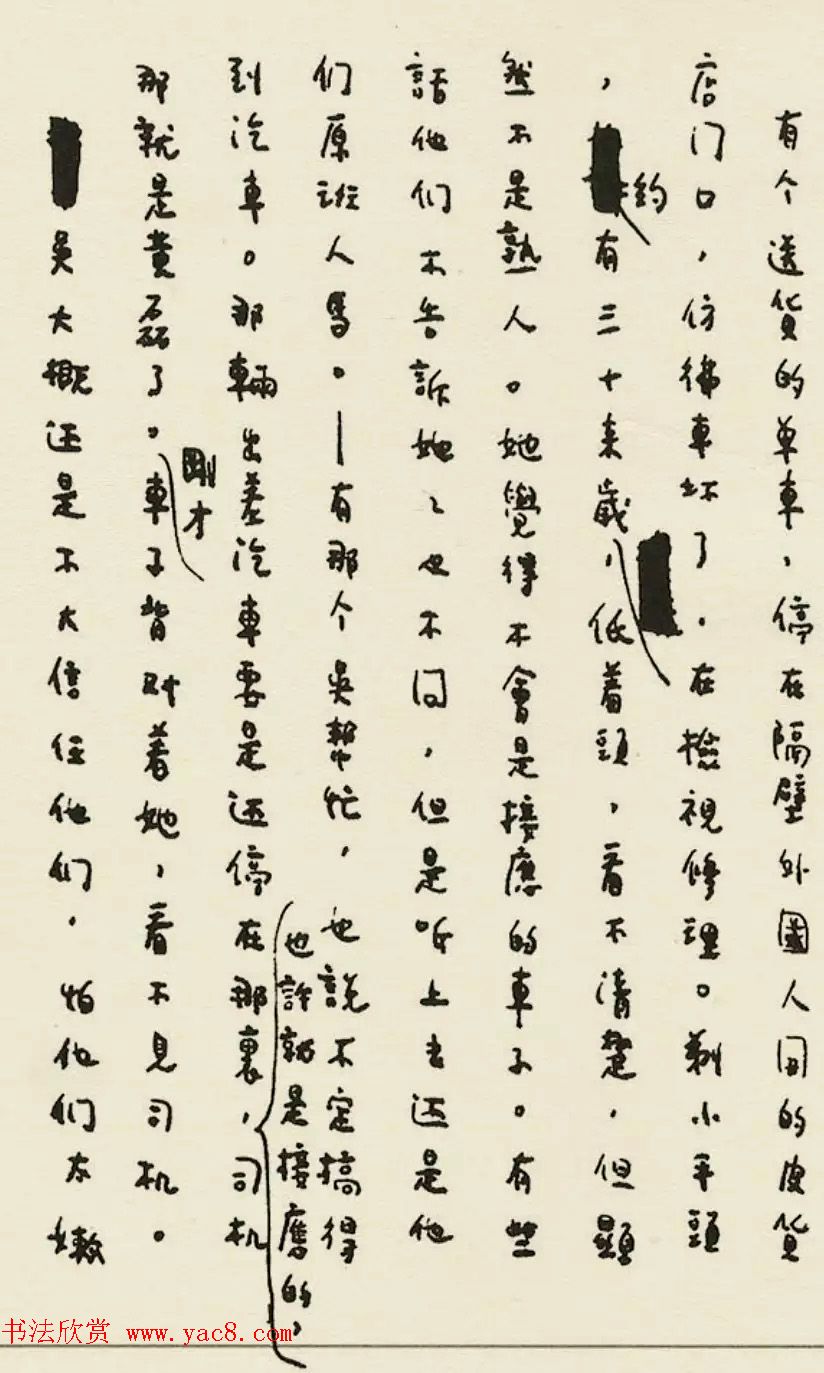 有个送货的单車，停在隔壁外國人開的皮货
店门口，仿彿車坏了，在檢視修理。剃小平頭
，約有三十来歲，低着頭，看不清楚，但顯
然不是熟人。她覺得不會是接應的車子。有些
話他们不告訴她她也不问，但是听上去还是他
们原班人馬。—有那个吳幫忙，也說不定搞得
也許就是接應的，
到汽車。那輛出差汽車要是还停在那裏，司机
那就是黄磊了。
剛才
車子背对着她，看不見司机。
吳大概还是不大信任他们，怕他们太嫩
书法欣赏 www.yac8.com